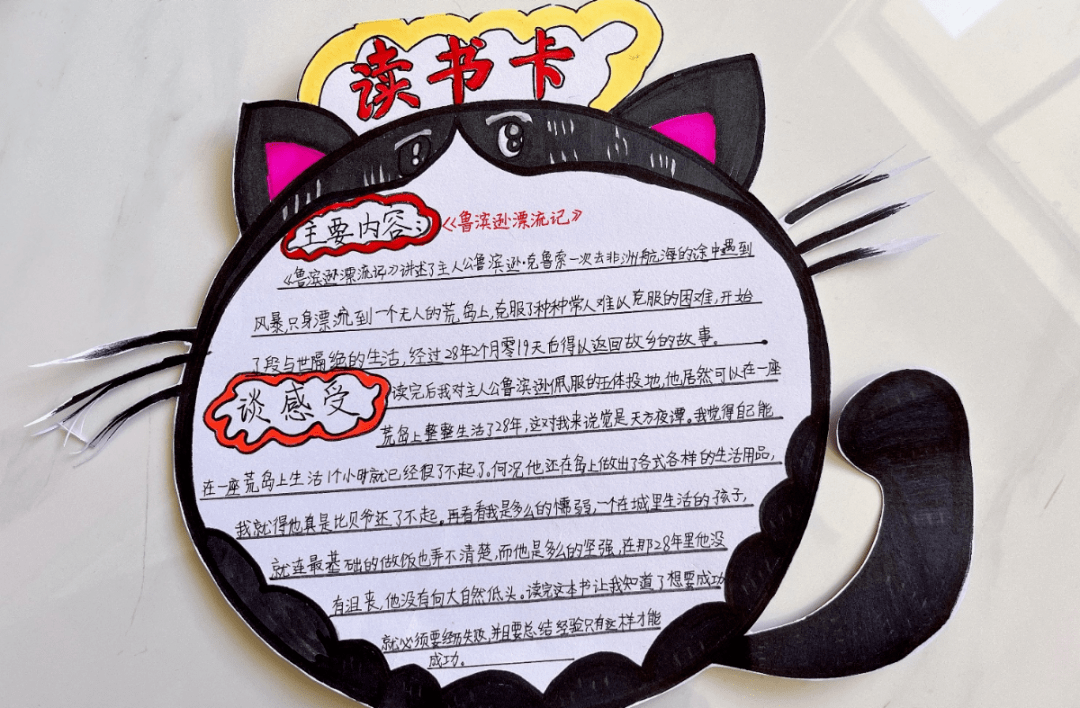 读书卡
主要内容:《鲁滨逊漂流记》
《鲁滨逊漂流记》讲述了主人公鲁滨逊·克鲁索一次去非洲航海的途中遇到
风暴,只身漂流到一个无人的荒岛上,克服了种种常人难以克服的困难,开始
了段与世隔绝的生活,经过28年2个月零19天后得以返回故乡的故事。
谈感受
读完后我对主人公鲁滨逊佩服的五体投地,他居然可以在一座
荒岛上整整生活了28年,这对我来说觉是天方夜谭。我觉得自己能
在一座荒岛上生活1个小时就已经很了不起了,何况他还在岛上做出了各式各样的生活用品,
我就得他真是比贝爷还了不起。再看看我是多么的懦弱,一个在城里生活的孩子,
就连最基础的做饭也弄不清楚,而他是多么的坚强,在那28年里他没
有沮丧,他没有向大自然低头。读完这本书让我知道了想要成功
就必须要经历失败,并且要总结经验只有这样才能
成功。